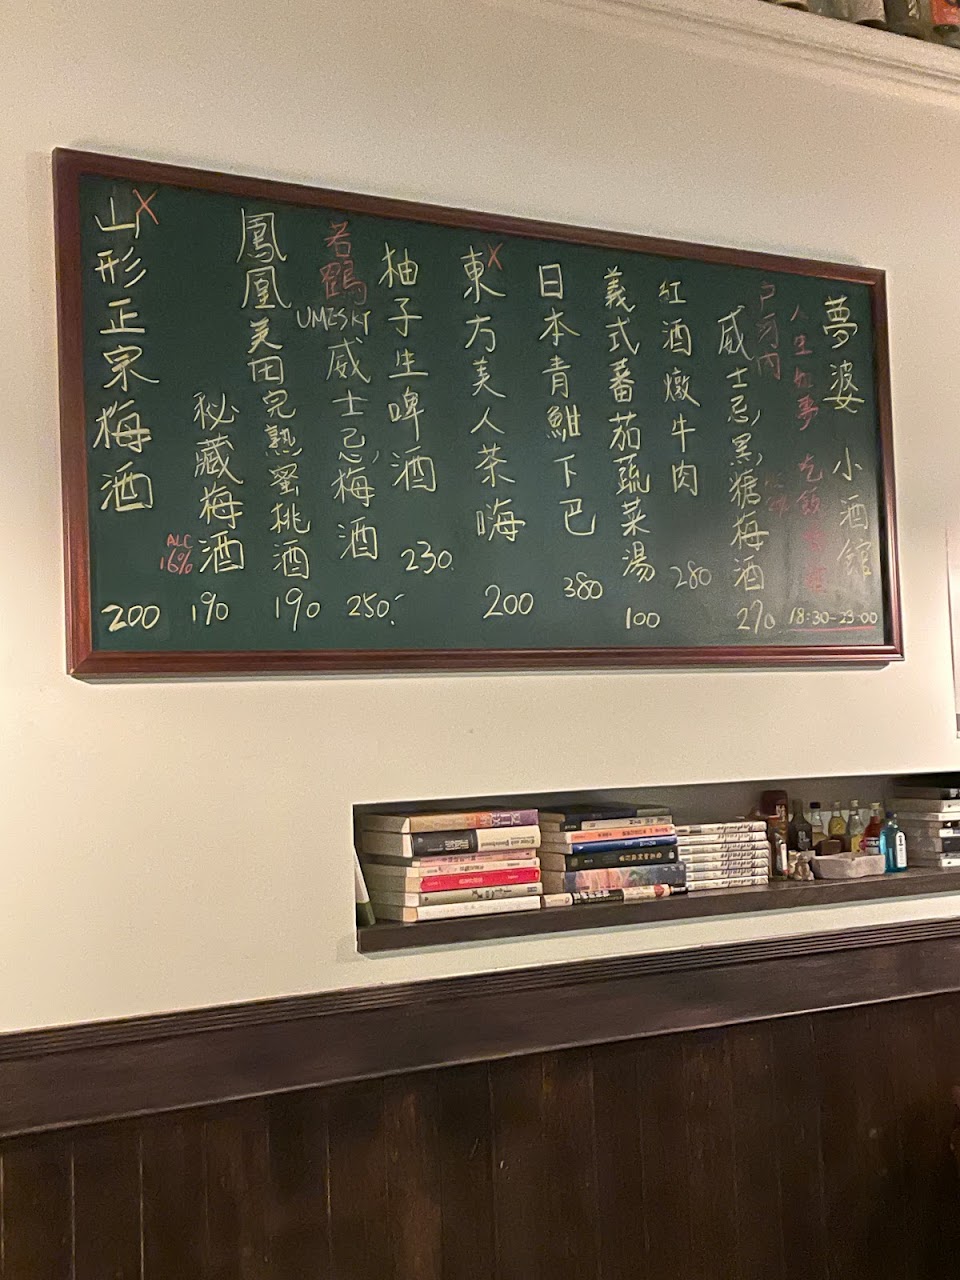 夢婆 小酒館
人生如夢 吃飯
18:30-23:00
戶河內
威士忌黑糖梅酒 270
紅酒燉牛肉 280
義式蕃茄蔬菜湯 100
日本青魽下巴 380
東方美人茶嗨 200
X
柚子生啤酒 230
若鶴
UMESKY
威士忌梅酒 250
鳳凰美田完熟蜜桃酒 190
秘藏梅酒 190
ALC 16%
山形正宗梅酒 200
X